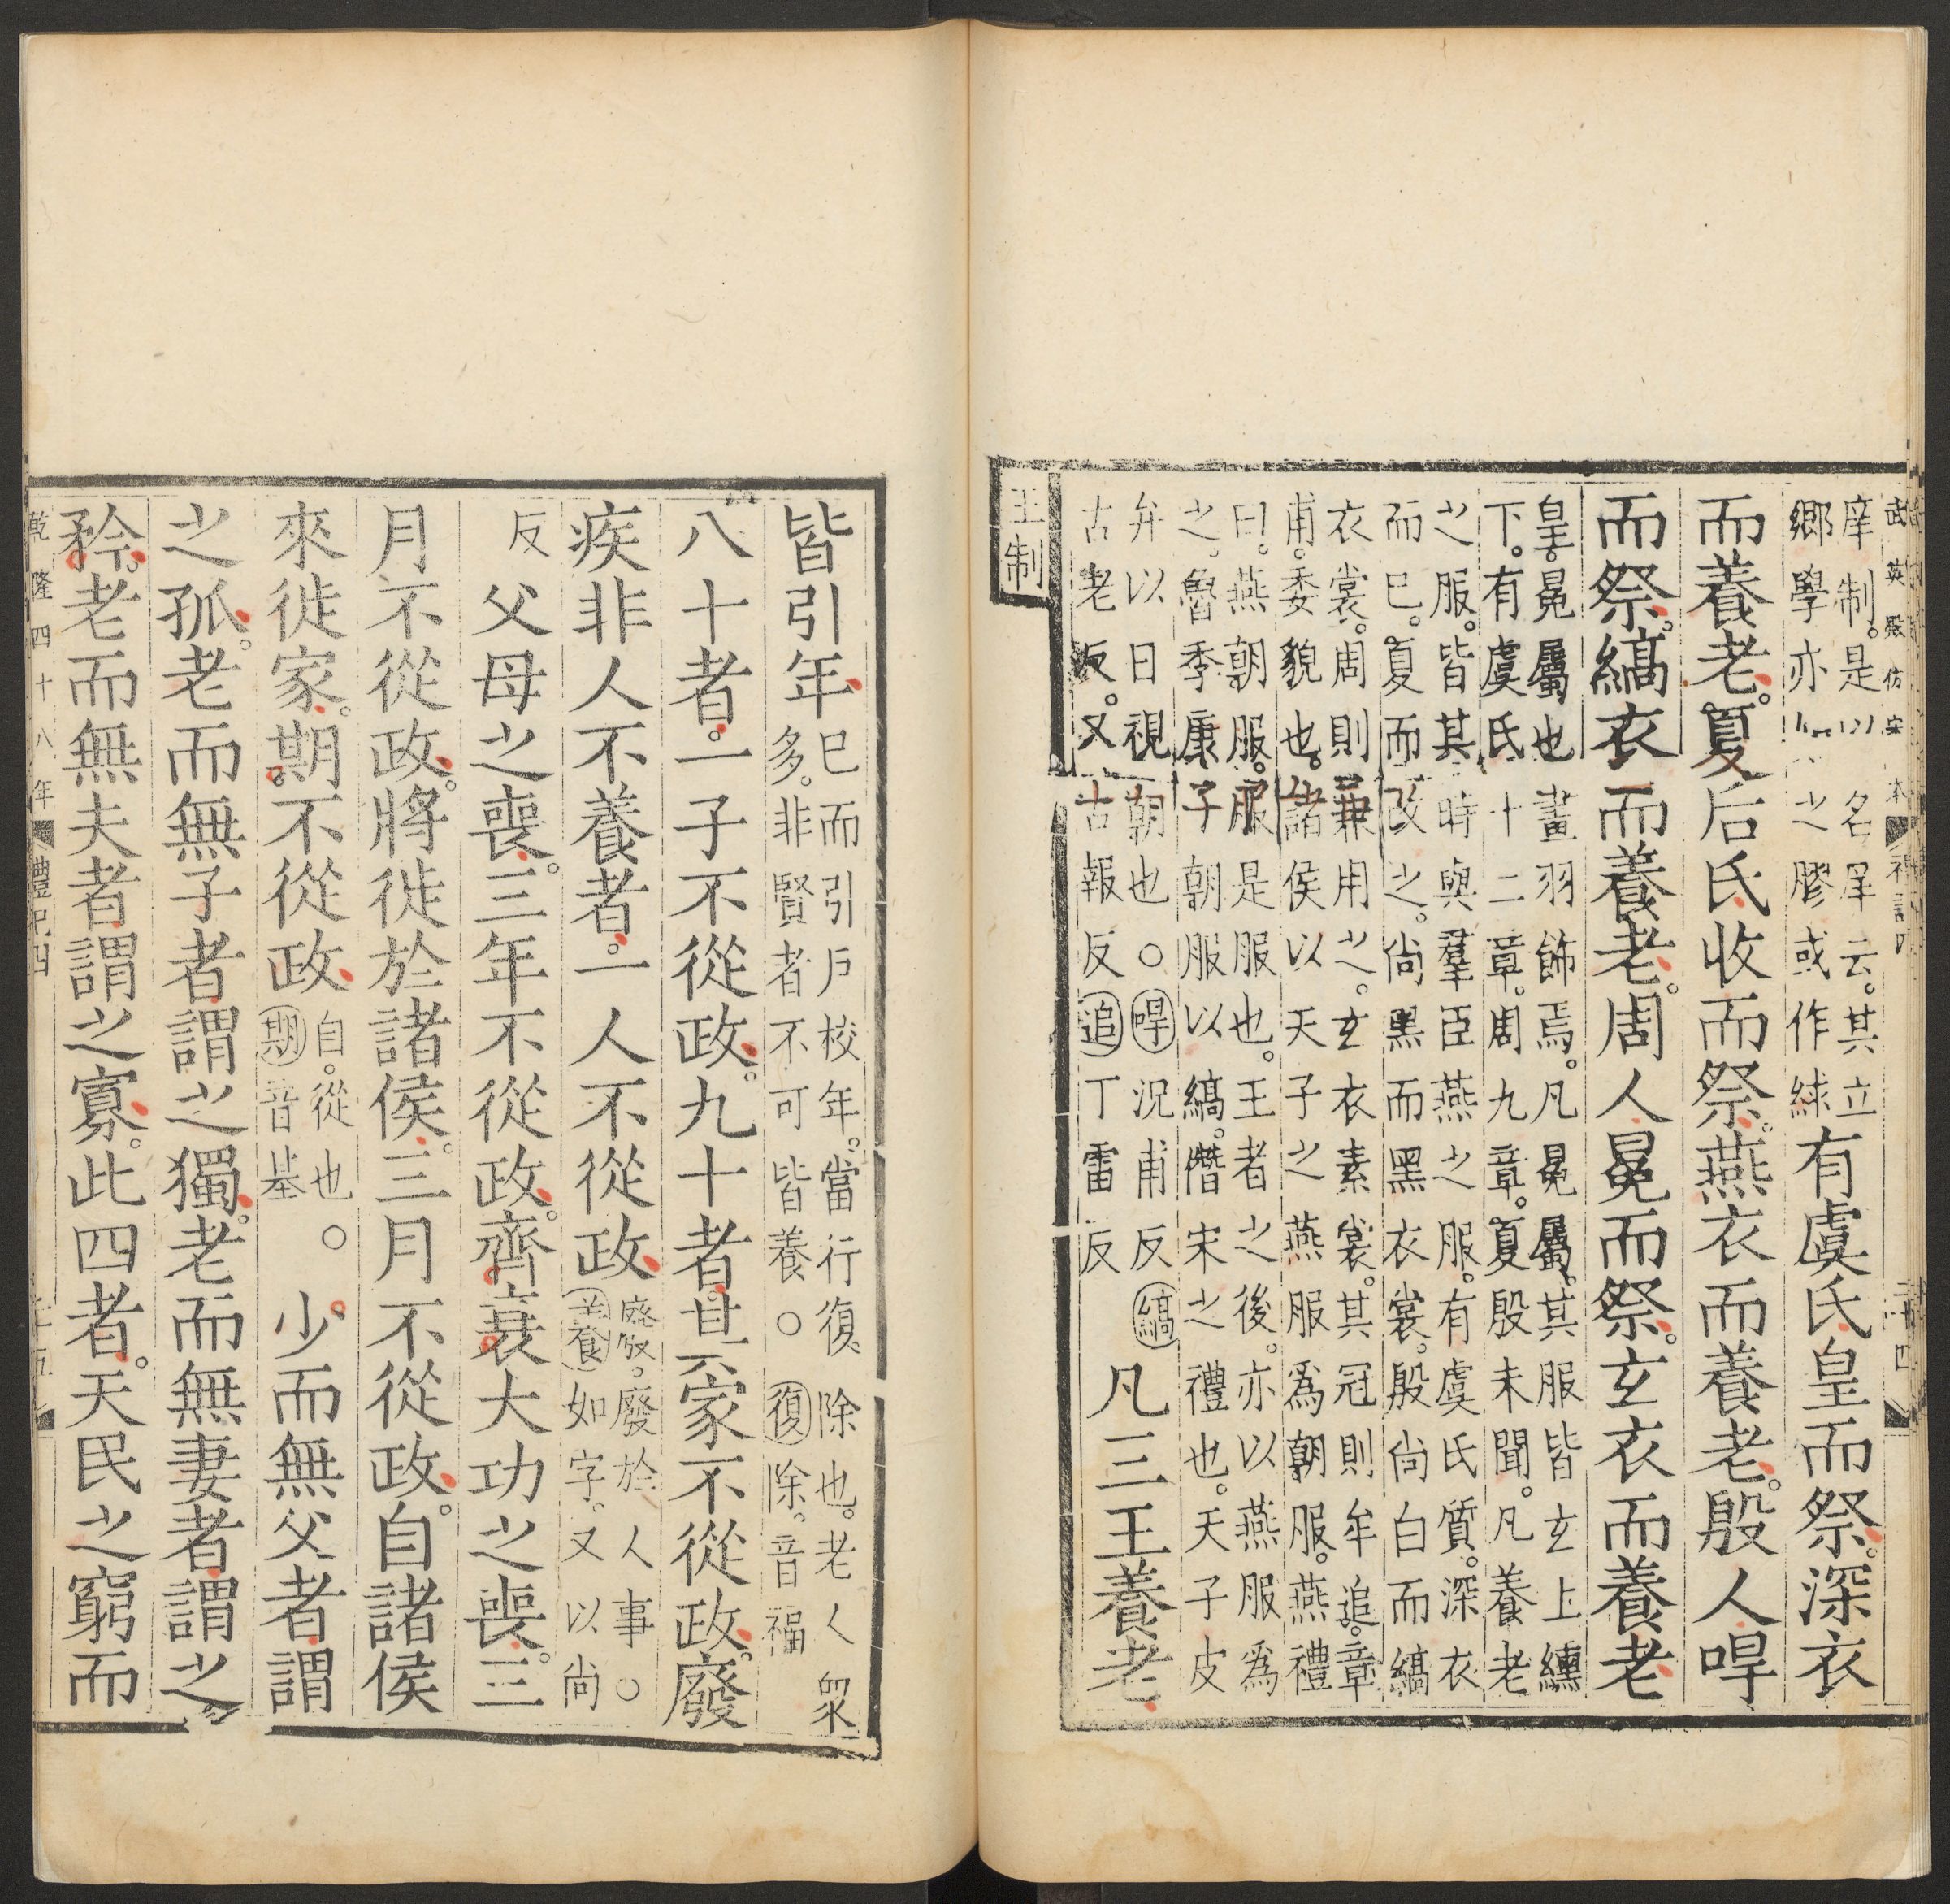 武英殿仿宋本 禮記四 二十四
庠制。是以名庠云。其立
鄉學亦如之膠或作絿
有虞氏皇而祭。深衣
而養老。夏后氏收而祭。燕衣而養老。殷人哻
而祭。縞衣而養老。周人冕而祭。玄衣而養老
皇。冕屬也畫羽飾焉。凡冕屬。其服皆玄上纁
下。有虞氏十二章。周九章。夏殷未聞。凡養老
之服。皆其時與羣臣燕之服。有虞氏質。深衣
而巳。夏而改之。尙黑而黑衣裳。殷尙白而縞
衣裳。周則兼用之。玄衣素裳。其冠則牟追。章
甫。委貌也。諸侯以天子之燕服爲朝服。燕禮
曰。燕朝服。服是服也。王者之後。亦以燕服爲
之。魯季康子朝服以縞。僭宋之禮也。天子皮
弁以日視朝也。○哻況甫反 縞
古老反。又古報反追丁雷反
凡三王養老
王制
皆引年
巳而引戶校年。當行復除也。老人眾
多。非賢者不可皆養○復除。音福
八十者。一子不從政。九十者。其家不從政。廢
疾非人不養者。一人不從政
廢政。廢於人事○
養如字。又以尙
反
父母之喪。三年不從政。齊衰大功之喪。三
月不從政。將徙於諸侯。三月不從政。自諸侯
來徙家。期。不從政
自。從也
期音基
。少而無父者謂
之孤。老而無子者謂之獨。老而無妻者謂之
矜。老而無夫者謂之寡。此四者。天民之窮而
乾隆四十八年 禮記四 二十五